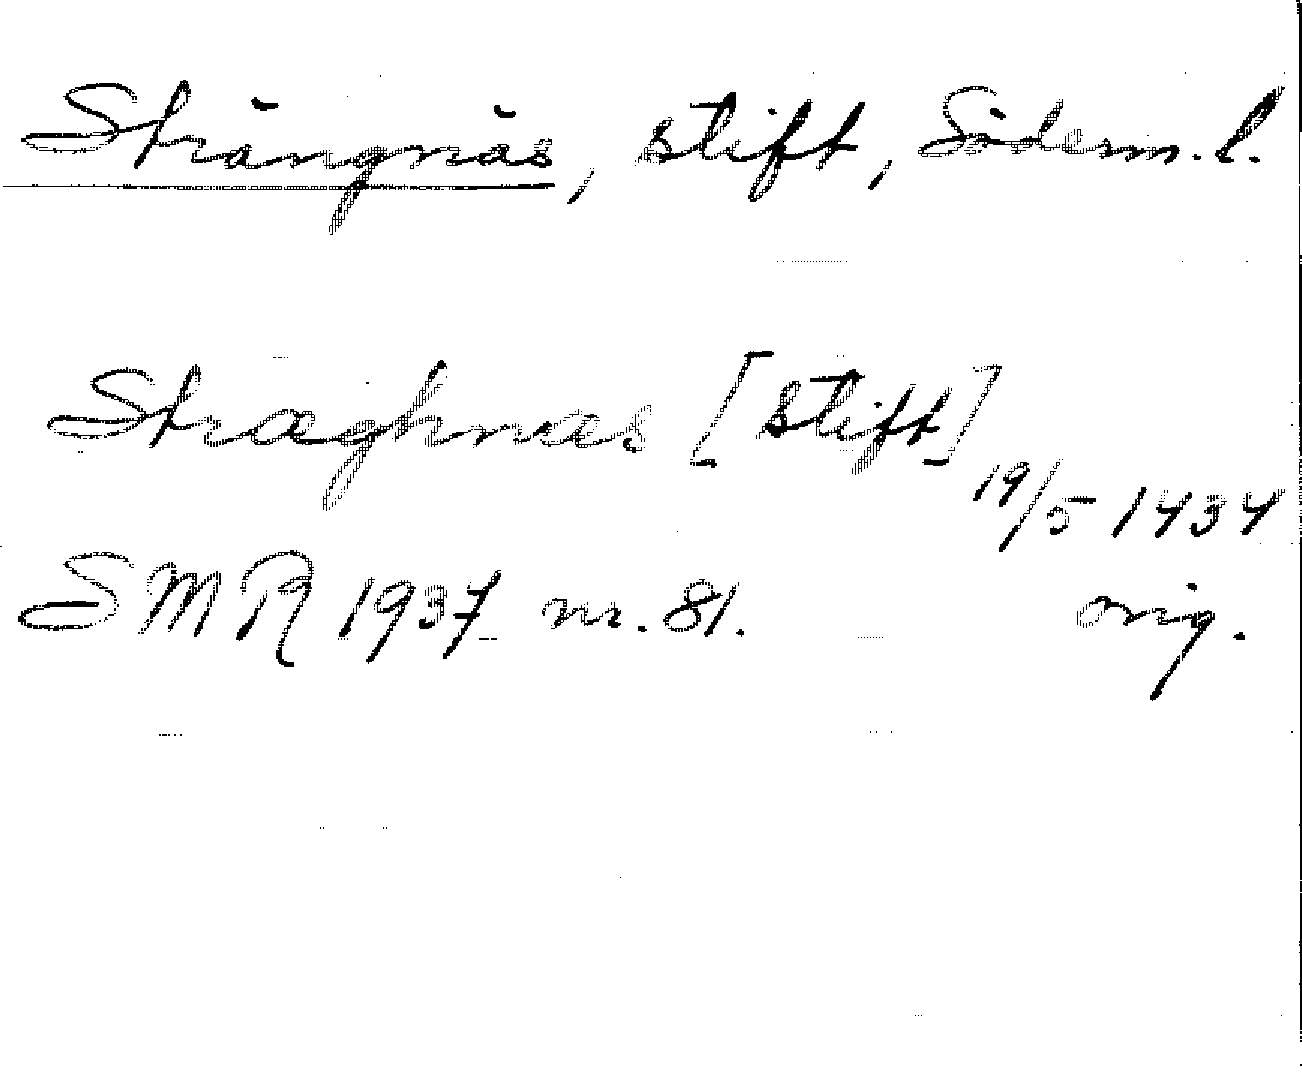 Strängnäs, stift, Söderm. l.
Stræghnæs [stift]
19/5 1434
SMR 1937 nr. 81. orig.